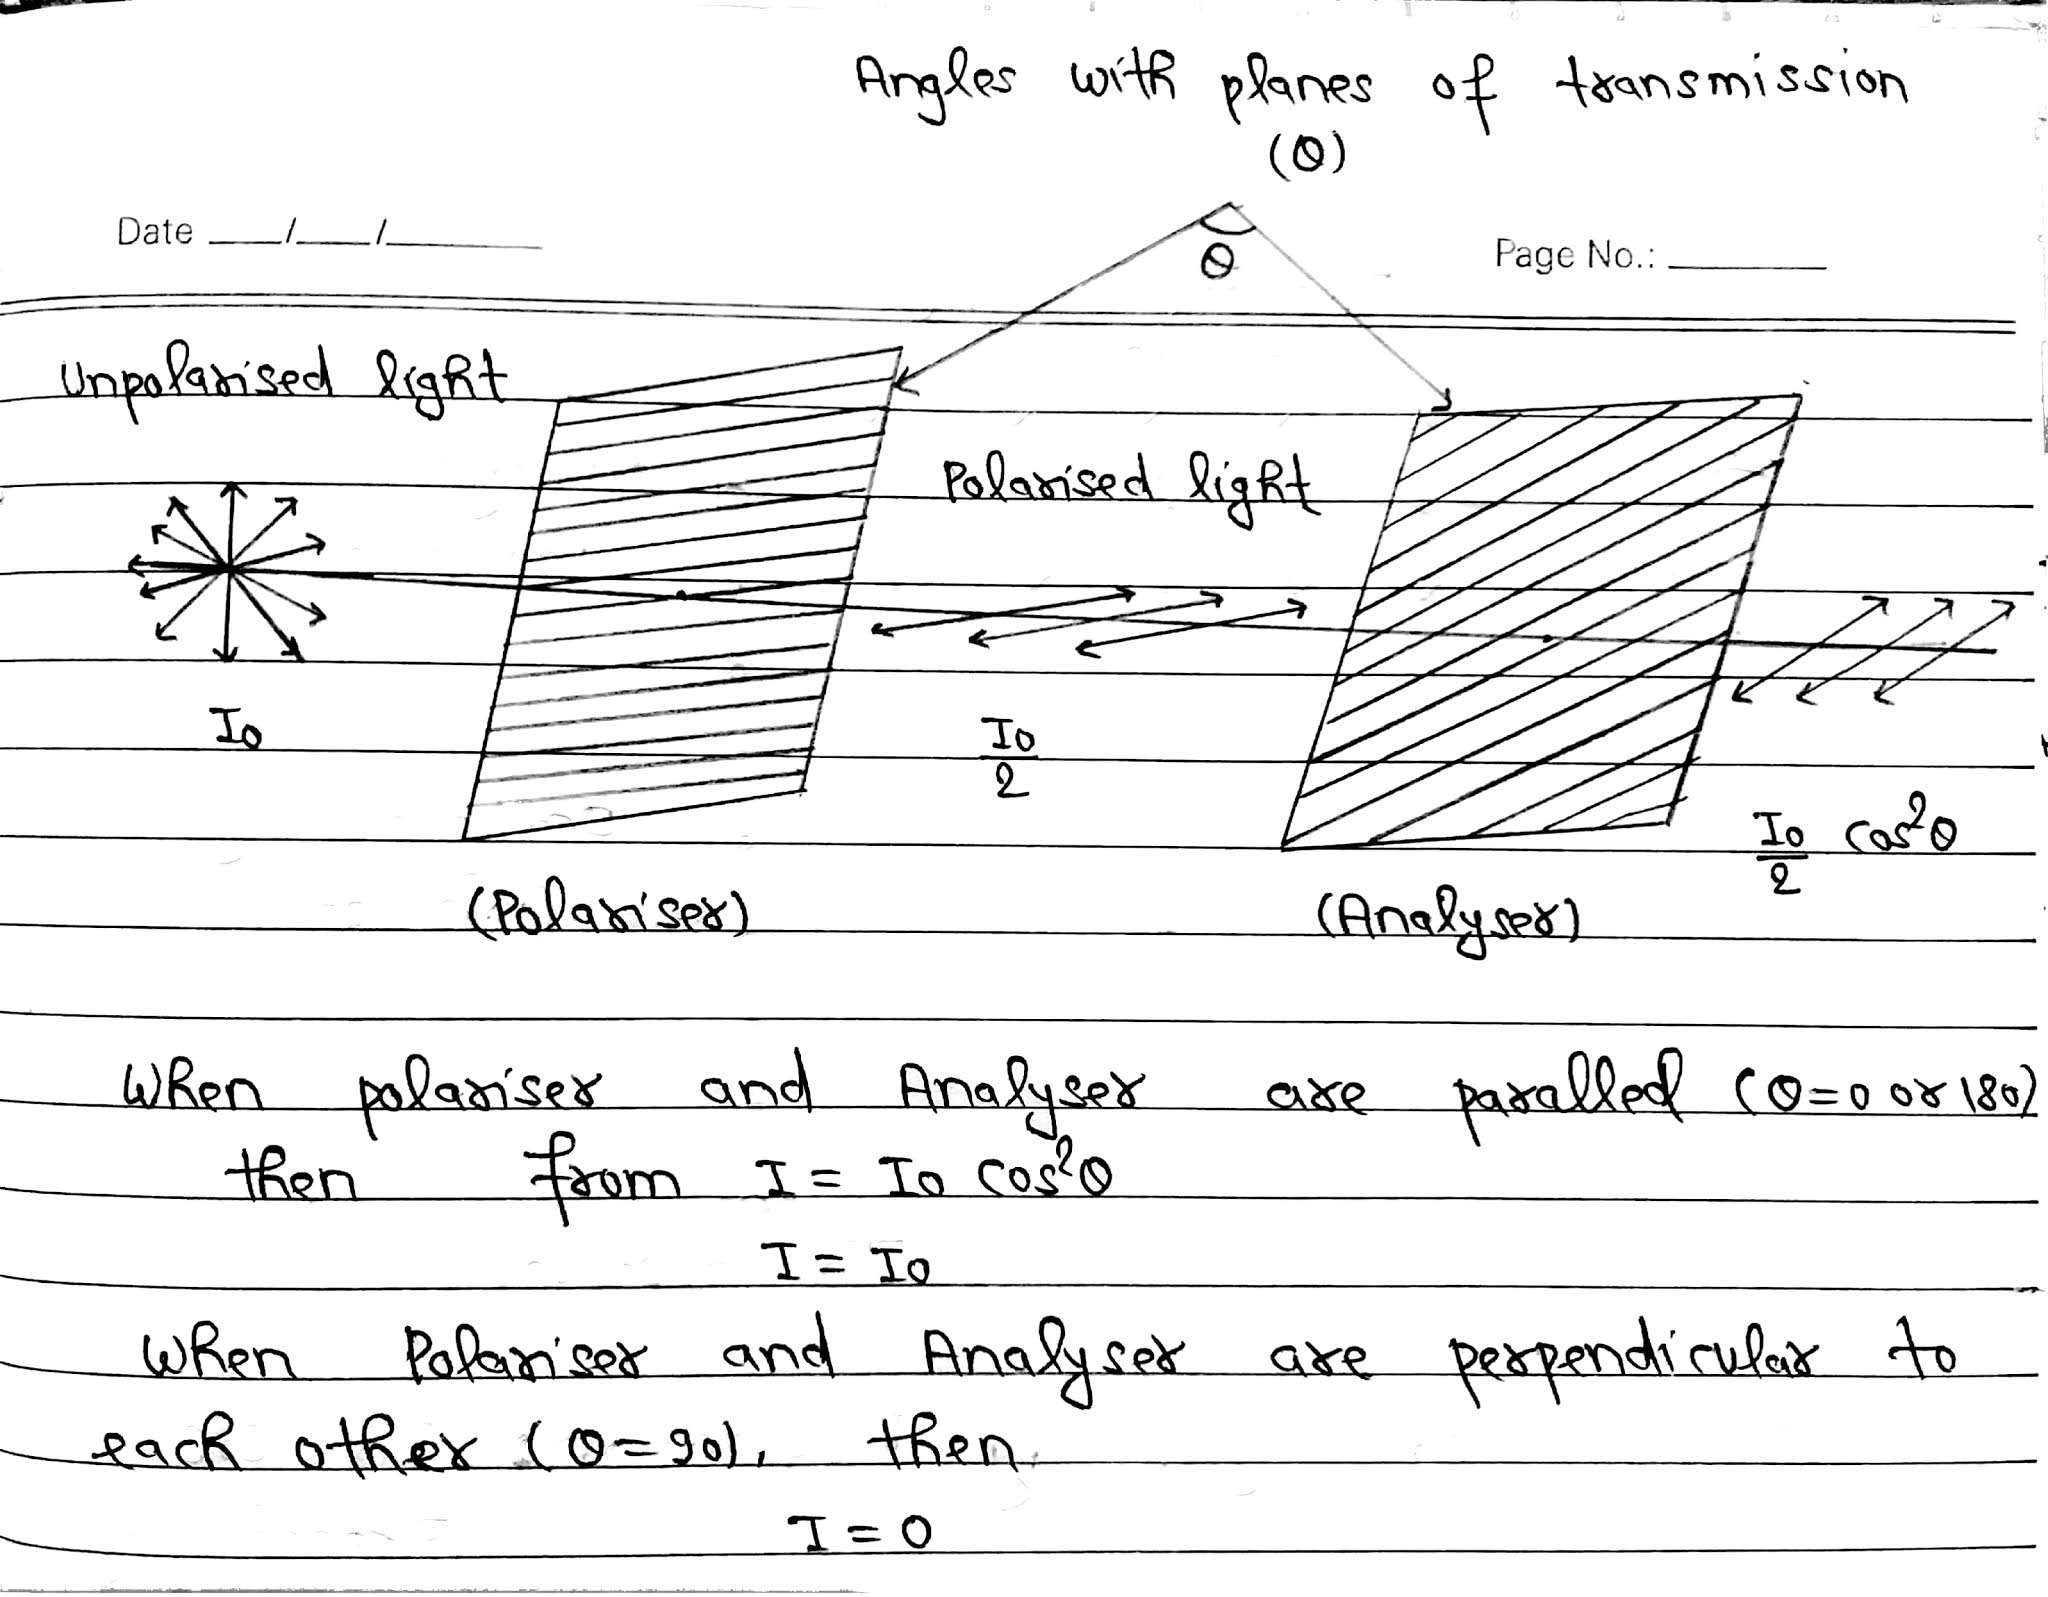 Angles with planes of transmission
(θ)
Date __/__/____
Page No.: ______
θ
Unpolarised light
Polarised light
I0
I0/2
I0/2 cos²θ
(Polariser)
(Analyser)
When polariser and Analyser are paralled (θ=0 or 180)
then from I = I0 cos²θ
I = I0
When Polariser and Analyser are perpendicular to
each other (θ=90), then
I = 0